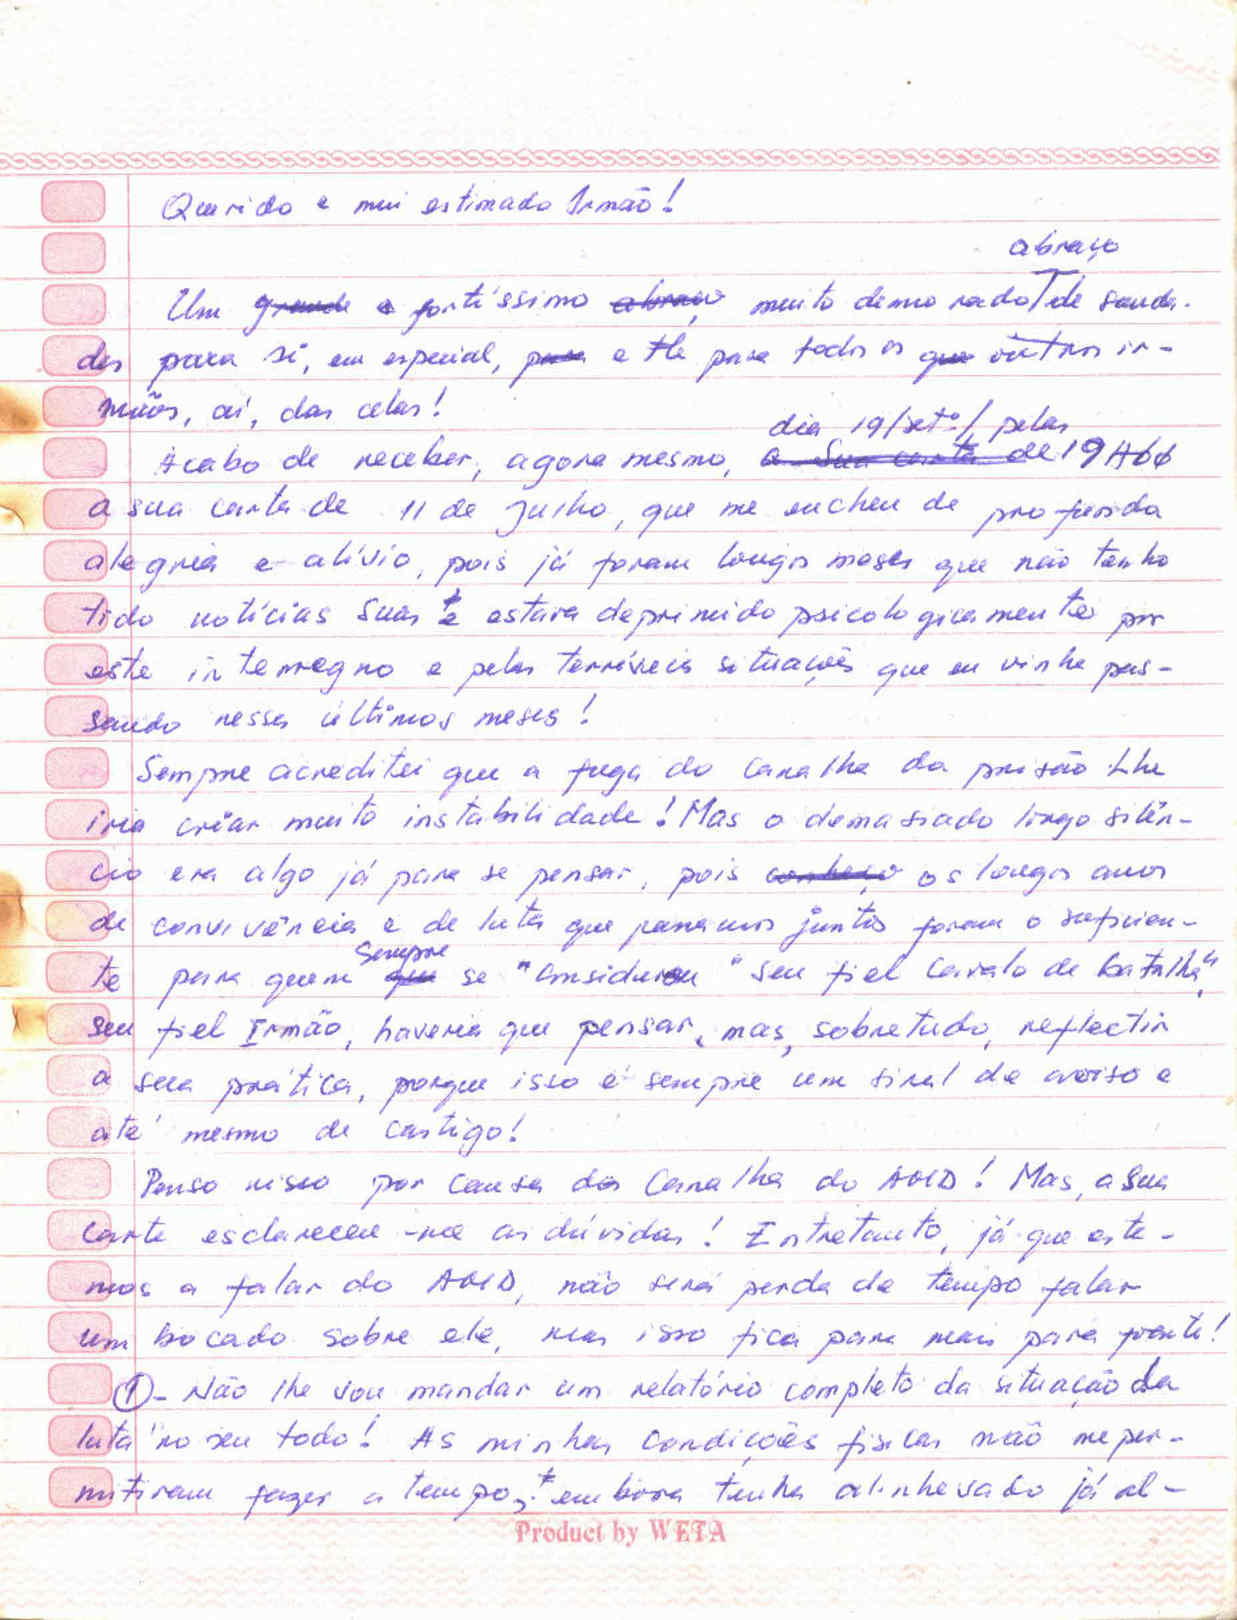 Querido e mui estimado Irmão!
abraço
Um grande e fortíssimo abraço, muito demorado de sauda-
des para Si, em especial, para e tb para todos os que outros ir-
mãos, aí, das celas!
dia 19/setº/ pelas
Acabo de receber, agora mesmo, a sua carta de 19H
a sua carta de 11 de Julho, que me encheu de profunda
alegria e alívio, pois já foram longos meses que não tenho
tido notícias Suas e estava deprimido psicologicamente por
este interregno e pelas terríveis situações que eu vinha pas-
sando nesses últimos meses!
Sempre acreditei que a fuga do Canalha da prisão Lhe
iria criar muita instabilidade! Mas o demasiado longo silên-
cio era algo já para se pensar, pois conheço os longos anos
de convivência e de luta que passamos juntos foram o suficien-
Sempre
te para quem que se "considerou" seu fiel cavalo de batalha",
seu fiel Irmão, haveria que pensar, mas, sobretudo, reflectir
a sua prática, porque isso é sempre um sinal de aviso e
até mesmo de castigo!
Penso nisso por causa do Canalha do AOLD! Mas, a Sua
Carta esclareceu-me as dúvidas! Entretanto, já que esta-
mos a falar do AOLD, não será perda de tempo falar
um bocado sobre ele, mas isso fica para mais para frente!
① - Não lhe vou mandar um relatório completo da situação da
luta no seu todo! As minhas condições físicas não me per-
mitiram fazer a tempo, embora tenha alinhavado já al-
Product by WETA